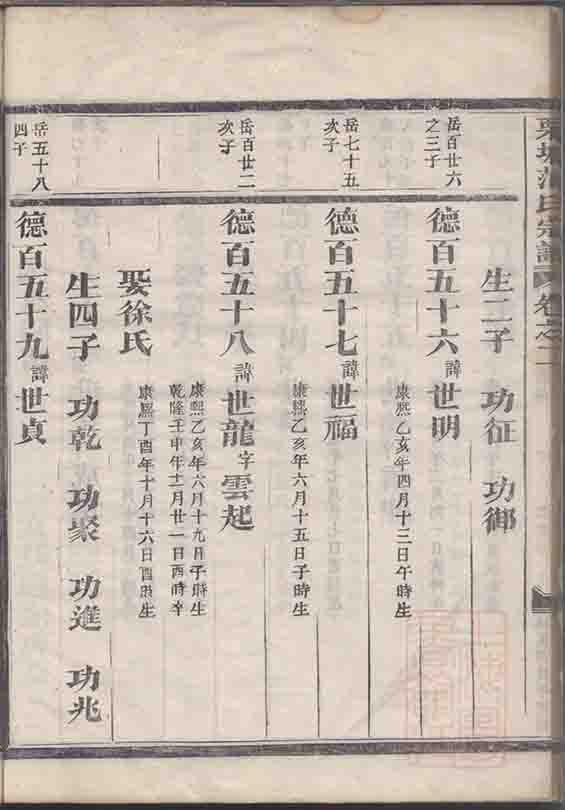 氏宗譜 卷之二
生二子 功征 功御
岳百廿六
之三子
德百五十六諱世明
康熙乙亥年四月十三日午時生
岳七十五
次子
德百五十七諱世福
康熙乙亥年六月十五日子時生
岳百廿二
次子
德百五十八諱世龍字雲起
康熙乙亥年六月十九日子時生
乾隆壬申年十二月廿一日酉時卒
娶徐氏
康熙丁酉年十月十六日酉時生
生四子 功乾 功聚 功進 功兆
岳五十八
四子
德百五十九諱世貞